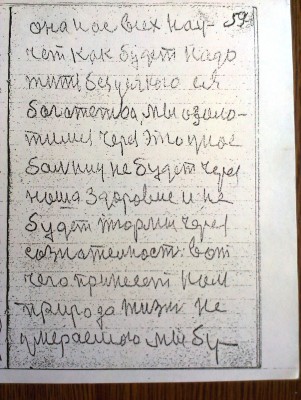 она нас всех нау- 59
чит как будет надо
жить без всякого
богатства мы озоло-
тимся через это у нас
болниц не будет через
наша здоровие и не
будет тюрми через
сознателность вот
чего принесет нам
природа жизн не
умераемою мы бу-